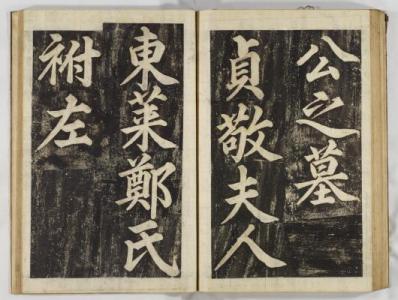 公之墓
貞敬夫人
東萊鄭氏
祔左